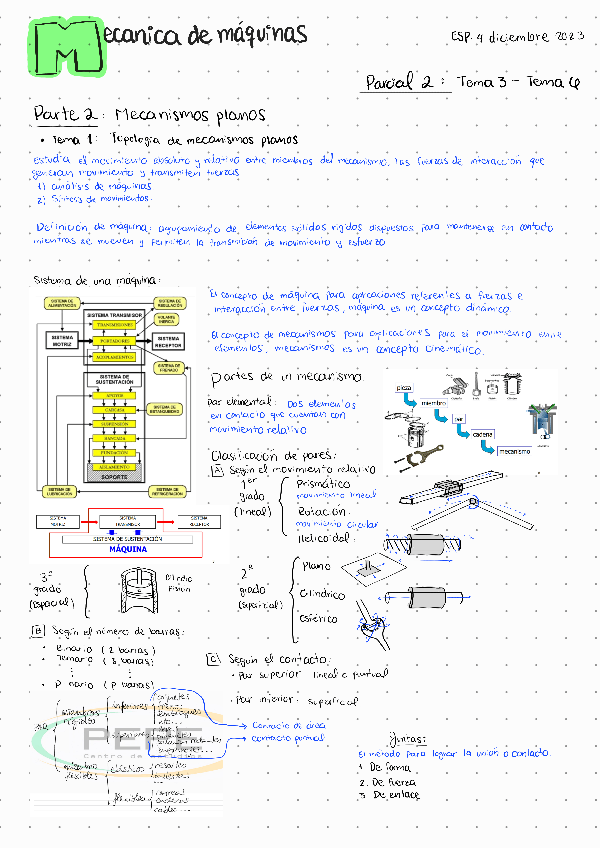 Mecanica de máquinas
ESP. 4 diciembre 2023
Parcial 2: Tema 3 - Tema 6
Parte 2: Mecanismos planos
• Tema 1: Topología de mecanismos planos
Estudia el movimiento absoluto y relativo entre miembros del mecanismo, las fuerzas de interacción que
generan movimiento y transmiten fuerzas
1) análisis de máquinas
2) Síntesis de movimientos.
Definición de máquina: agrupamiento de elementos sólidos rígidos dispuestos para mantenerse en contacto
mientras se mueven y permiten la transmisión de movimiento y esfuerzo
Sistema de una máquina:
SISTEMA DE ALIMENTACIÓN
SISTEMA DE REGULACIÓN
SISTEMA TRANSMISOR
VOLANTE INERCIA
TRANSMISIONES
SISTEMA MOTRIZ
PORTADORES
SISTEMA RECEPTOR
ACOPLAMIENTOS
SISTEMA DE FRENADO
SISTEMA DE SUSTENTACIÓN
APOYOS
CARCASA
SISTEMA DE ESTANQUEIDAD
SUSPENSIÓN
BANCADA
FUNDACIÓN
AISLAMIENTO
SOPORTE
SISTEMA DE LUBRICACIÓN
SISTEMA DE REFRIGERACIÓN
SISTEMA MOTRIZ
SISTEMA TRANSMISOR
SISTEMA RECEPTOR
SISTEMA DE SUSTENTACIÓN
MÁQUINA
El concepto de máquina para aplicaciones referentes a fuerzas e
interacción entre fuerzas, máquina es un concepto dinámico.
El concepto de mecanismos para aplicaciones para el movimiento entre
elementos, mecanismos es un concepto cinemático.
Partes de un mecanismo
par elemental: Dos elementos
en contacto que cuentan con
movimiento relativo
pieza
miembro
par
cadena
mecanismo
Clasificación de pares:
A Según el movimiento relativo
1er grado (lineal)
Prismático
movimiento lineal
Rotación
movimiento circular
Helicoidal
2º grado (superficial)
Plano
Cilíndrico
Esférico
3º grado (espacial)
Cilindro
Piston
B Según el número de barras:
• Binario (2 barras)
• Ternario (3 barras)
• P nario (P barras)
C Según el contacto:
• Par superior lineal o puntual
• Par inferior: superficial
miembros rígidos
inferiores
superiores
→ Contacto de área
→ contacto puntual
elásticos
flexibles
correas
cadenas
cables...
Juntas:
El método para lograr la unión o contacto.
1. De forma
2. De fuerza
3. De enlace